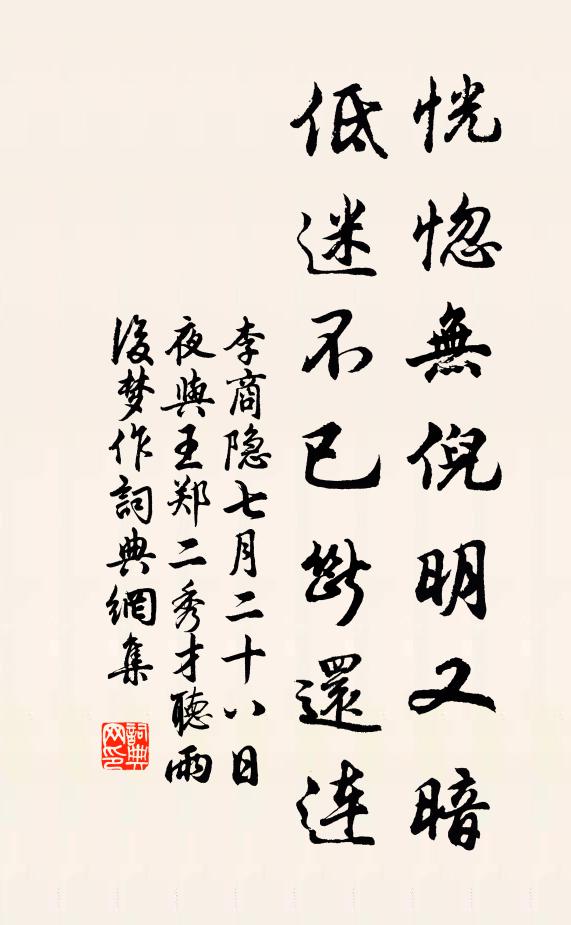 恍惚無倪明又暗
低迷不已斷還連
李商隐七月二十八日
夜與王郑二秀才聽雨
後梦作詞典網集
詞典
网印